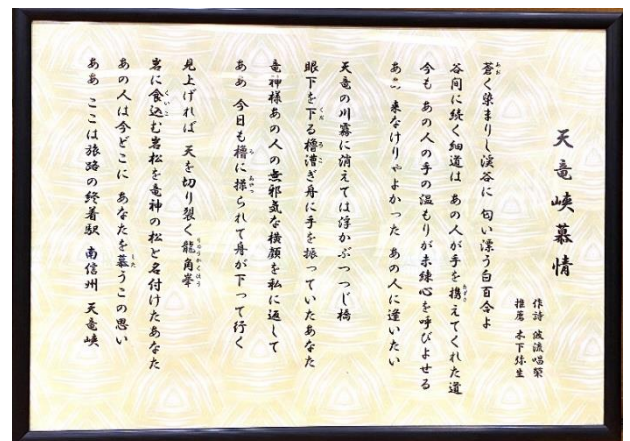 天竜峡慕情
作詩 波流唱栄
推薦 木下弥生
蒼く染まりし渓谷に 匂い漂う白百合よ
谷間に続く細道は あの人が手を携えてくれた道
今も あの人の手の温もりが未練心を呼びよせる
あゝ 来なけりゃよかった あの人に逢いたい
天竜の川霧に消えては浮かぶつつじ橋
眼下を下る櫓漕ぎ舟に手を振っていたあなた
竜神様あの人の無邪気な横顔を私に返して
ああ 今日も櫓に操られて舟が下って行く
見上げれば 天を切り裂く龍角峯
岩に食込む岩松を竜神の松と名付けたあなた
あの人は今どこに あなたを慕うこの思い
ああ ここは旅路の終着駅 南信州 天竜峡